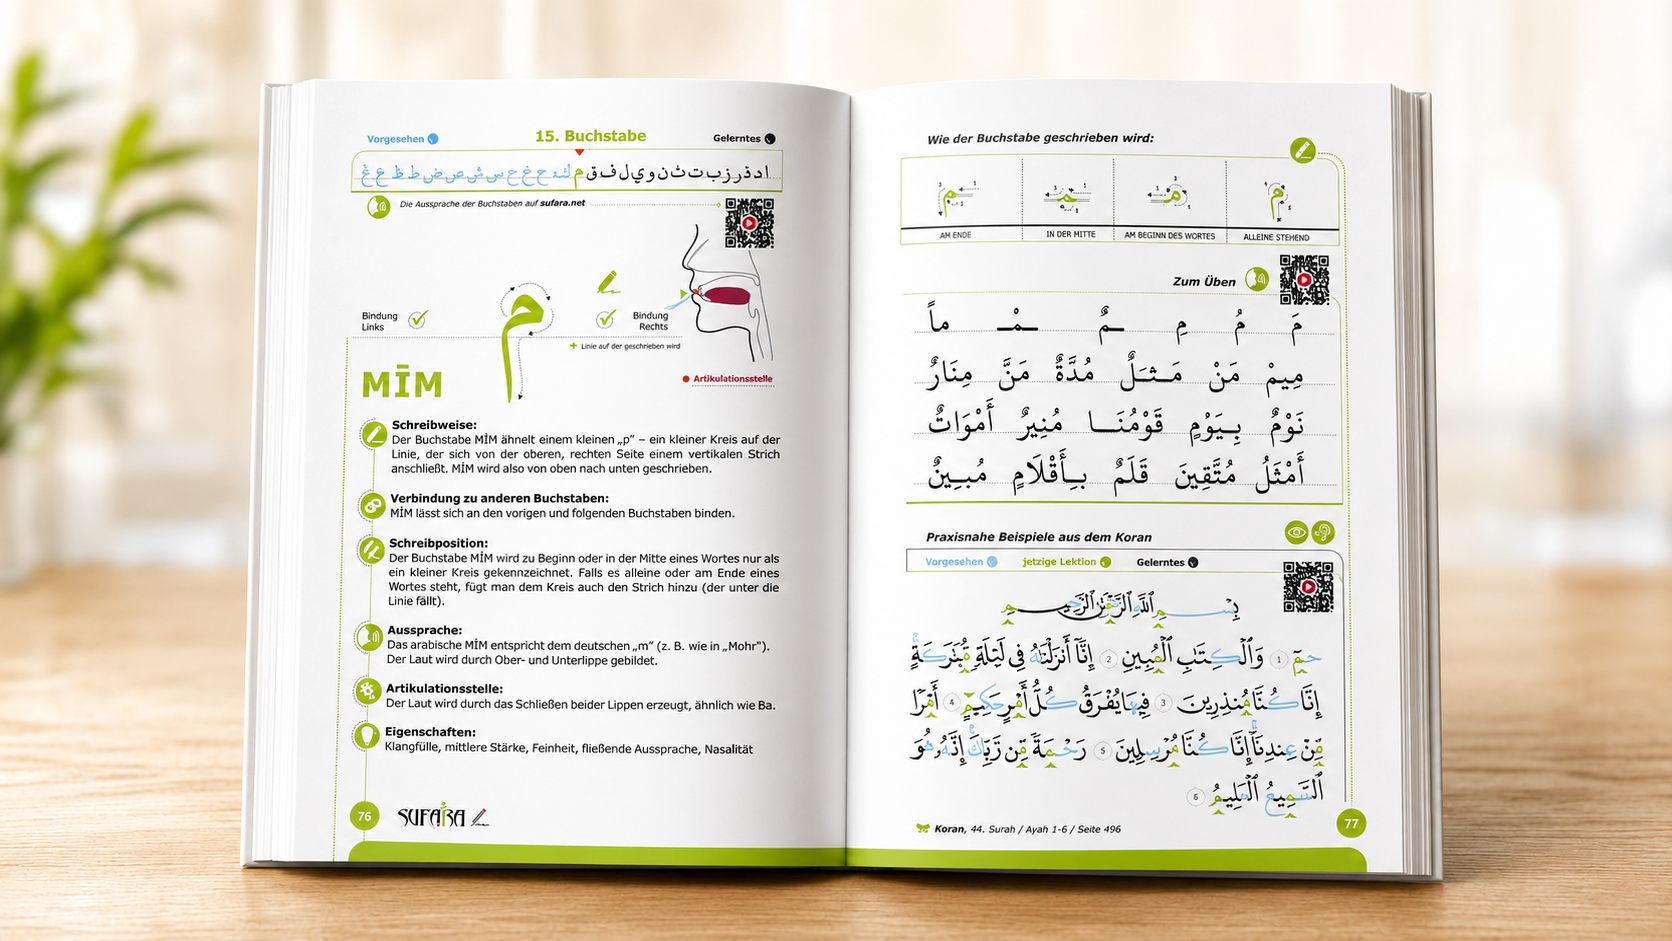 Vorgesehen
15. Buchstabe
Gelerntes
ا د ذ ر ز ب ت ث ن و ي ل ف ق م ك ه ج غ ح س ش ص ض ط ظ ع خ
Die Aussprache der Buchstaben auf sufara.net
Bindung
Links
Bindung
Rechts
+ Linie auf der geschrieben wird
م
MĪM
Artikulationsstelle
Schreibweise:
Der Buchstabe MĪM ähnelt einem kleinen „p“ – ein kleiner Kreis auf der
Linie, der sich von der oberen, rechten Seite einem vertikalen Strich
anschließt. MĪM wird also von oben nach unten geschrieben.
Verbindung zu anderen Buchstaben:
MĪM lässt sich an den vorigen und folgenden Buchstaben binden.
Schreibposition:
Der Buchstabe MĪM wird zu Beginn oder in der Mitte eines Wortes nur als
ein kleiner Kreis gekennzeichnet. Falls es alleine oder am Ende eines
Wortes steht, fügt man dem Kreis auch den Strich hinzu (der unter die
Linie fällt).
Aussprache:
Das arabische MĪM entspricht dem deutschen „m“ (z. B. wie in „Mohr“).
Der Laut wird durch Ober- und Unterlippe gebildet.
Artikulationsstelle:
Der Laut wird durch das Schließen beider Lippen erzeugt, ähnlich wie Ba.
Eigenschaften:
Klangfülle, mittlere Stärke, Feinheit, fließende Aussprache, Nasalität
76
SUFARA
Wie der Buchstabe geschrieben wird:
AM ENDE
IN DER MITTE
AM BEGINN DES WORTES
ALLEINE STEHEND
Zum Üben
مَ مُ مِ ـمٌ ـمْـ ماً
مِيمْ مَنْ مَـثَـلٌ مُدَّةٌ مَنَّ مِنَارٌ
نَوْمٌ بِـيَوْمٍ قَوْمُنَـا مُنِيرٌ أَمْوَاتٌ
أَمْثَلُ مُتَّقِينَ قَلَمٌ بِـأَقْلَامٍ مُبِـينٌ
Praxisnahe Beispiele aus dem Koran
Vorgesehen
jetzige Lektion
Gelerntes
بِسْمِ اللَّهِ الرَّحْمَٰنِ الرَّحِيمِ
حمٓ 1 وَالْكِتَٰبِ الْمُبِينِ 2 إِنَّآ أَنزَلْنَٰهُ فِى لَيْلَةٍ مُّبَٰرَكَةٍ
إِنَّا كُنَّا مُنذِرِينَ 3 فِيهَا يُفْرَقُ كُلُّ أَمْرٍ حَكِيمٍ 4 أَمْرًا
مِّنْ عِندِنَآ إِنَّا كُنَّا مُرْسِلِينَ 5 رَحْمَةً مِّن رَّبِّكَ إِنَّهُۥ هُوَ
السَّمِيعُ الْعَلِيمُ 6
Koran, 44. Surah / Ayah 1-6 / Seite 496
77